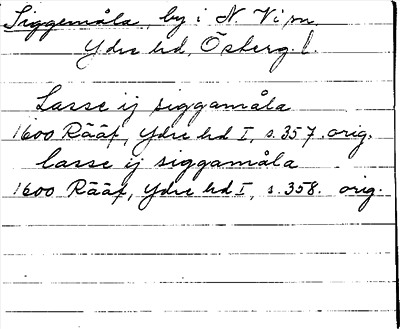 Siggemåla, by i N. Vi sn
Ydre hd, Österg. l.
Lasse ij siggamåla
1600 Rääf, Ydre hd I, s. 357. orig.
lasse ij siggamåla
1600 Rääf, Ydre hd I, s. 358. orig.